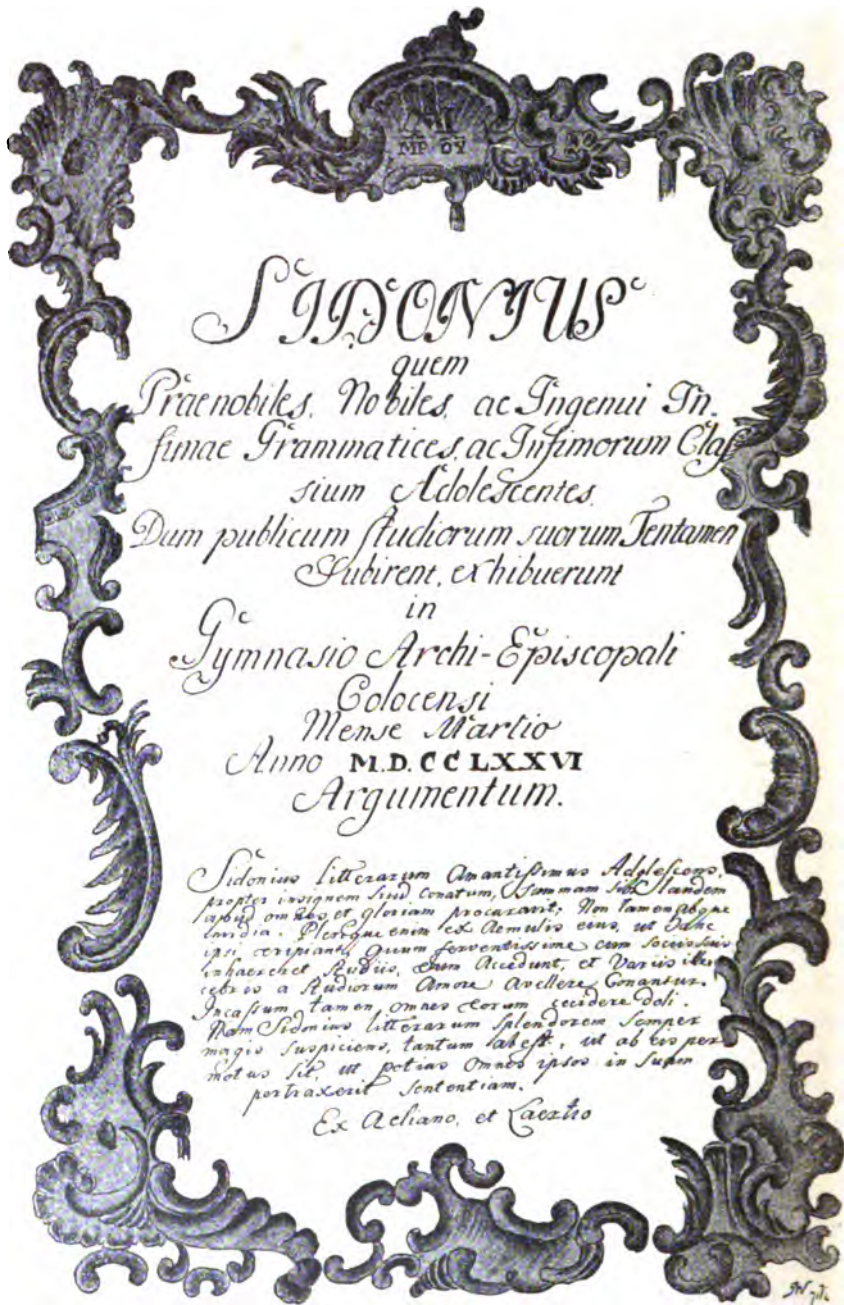 MP OY
SIDONIUS
quem
Praenobiles, Nobiles, ac Ingenui In,
fimae Grammatices, ac Infimorum Claſ
sium Adolescentes,
Dum publicum ſtudiorum suorum Tentamen
Subirent, exhibuerunt
in
Gymnasio Archi-Episcopali
Colocensi
Mense Martio
Anno M.D.CCLXXVI
Argumentum.
Sidonius litterarum Amantiſsimus Adoleſcens,
propter insignem suum Conatum, Summam sibi laudem
apud omnes et gloriam procuravit; Non tamen absque
invidia. Plerique enim ex Aemulis eius, ut hanc
ipsi eripiant, Quum ferventissime cum sociis suis
inhaereret studiis, eum Accedunt, et Variis ille,
cebris a studiorum Amore Avellere Conantur.
Incassum tamen omnes eorum cecidere Doli.
Nam Sidonius litterarum splendorem semper
magis suspiciens, tantum abest, ut ab eis per
motus sit, ut potius omnes ipsos in suam
pertraxerit sententiam.
Ex Aeliano, et Laertio